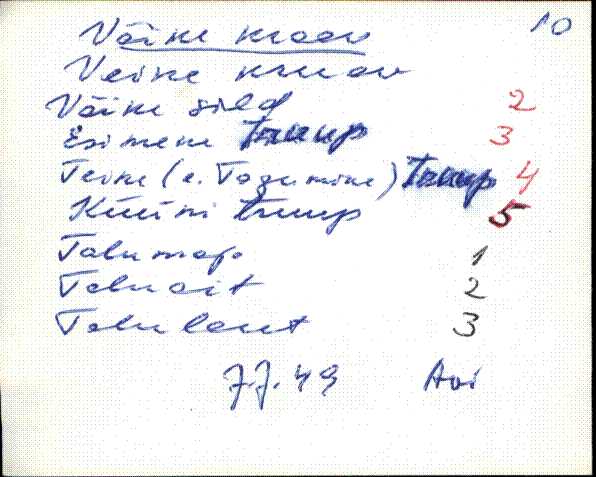 10
Väike kraav
Veike kruav
Väike sild 2
Esimene truup 3
Teine (e. Tagumine) Truup 4
Küüni truup 5
Talu maja 1
Talu ait 2
Talu laut 3
7.7.49